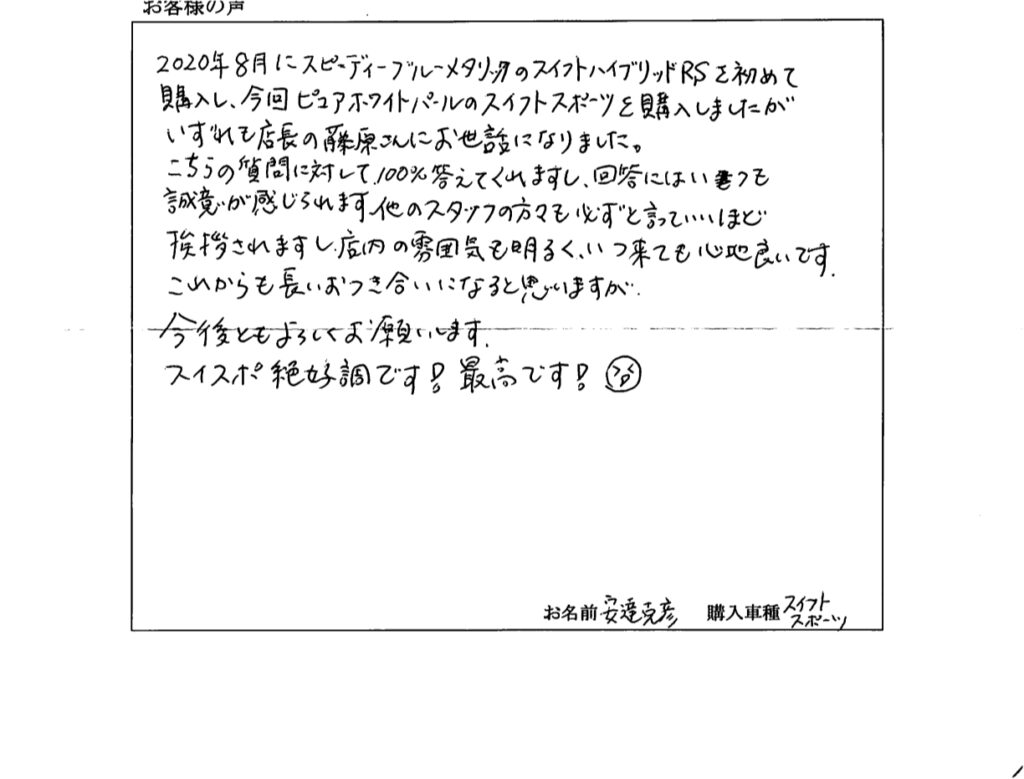 お客様の声
2020年8月にスピーディーブルーメタリックのスイフトハイブリッドRSを初めて
購入し、今回ピュアホワイトパールのスイフトスポーツを購入しましたが
いずれも店長の藤原さんにお世話になりました。
こちらの質問に対して100%答えてくれますし、回答にはいつも
誠意が感じられます。他のスタッフの方々も必ずと言っていいほど
挨拶されますし、店内の雰囲気も明るく、いつ来ても心地良いです。
これからも長いおつき合いになると思いますが、
今後ともよろしくお願いします。
スイスポ絶好調です! 最高です!
お名前 安達克彦 購入車種 スイフト
スポーツ